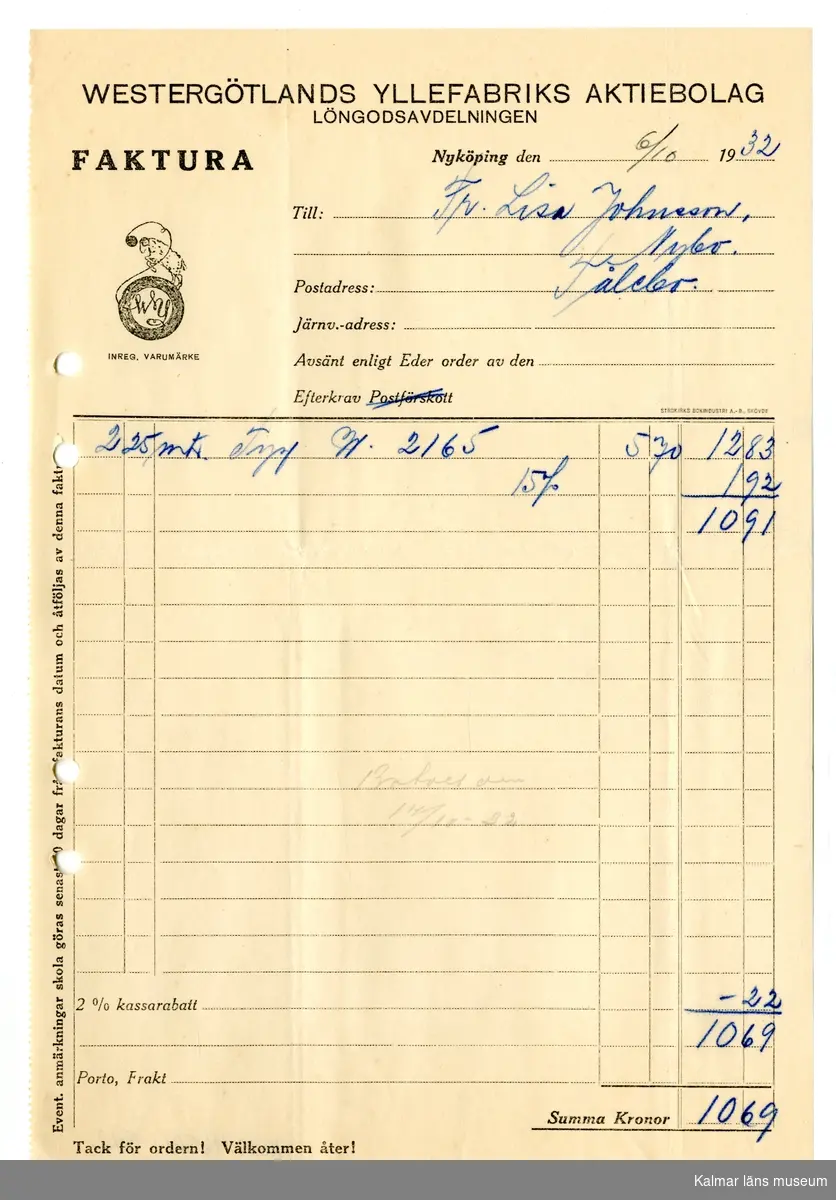 WESTERGÖTLANDS YLLEFABRIKS AKTIEBOLAG
LÖNGODSAVDELNINGEN
FAKTURA
Nyköping den 6/10 1932
Till: Fr. Lisa Johnsson,
Nybo.
Postadress: Fålebo.
Järnv.-adress:
INREG. VARUMÄRKE
Avsänt enligt Eder order av den
Efterkrav Postförskott
STRÖKIRKS BOKINDUSTRI A.-B., SKÖVDE
2 25 mtr. Tyg N. 2165 5 70 12 83
15% 1 92
10 91
Event. anmärkningar skola göras senast 10 dagar från fakturans datum och åtföljas av denna
14/10 - 22
2 % kassarabatt - 22
10 69
Porto, Frakt
Summa Kronor 10 69
Tack för ordern! Välkommen åter!
Kalmar läns museum